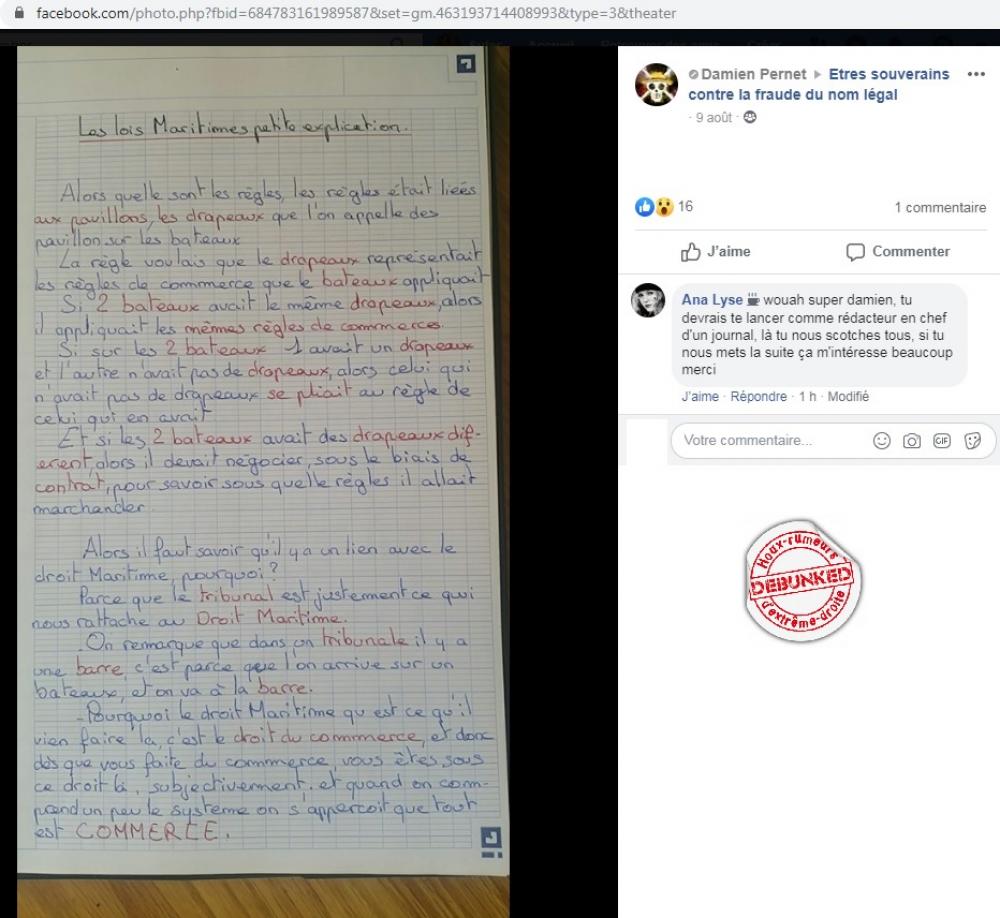 facebook.com/photo.php?fbid=684783161989587&set=gm.463193714408993&type=3&theater
Les lois Maritimes petite explication.
Alors quelle sont les règles, les règles était lieés
aux pavillons, les drapeaux que l'on appelle des
pavillon sur les bateaux
La règle voulais que le drapeaux représentait
les règles de commerce que le bateaux appliquait
Si 2 bateaux avait le même drapeaux, alors
il appliquait les mêmes règles de commerces.
Si sur les 2 bateaux 1 avait un drapeaux
et l'autre n'avait pas de drapeaux, alors celui qui
n'avait pas de drapeaux se pliait au règle de
celui qui en avait
Et si les 2 bateaux avait des drapeaux dif-
erent, alors il devait négocier, sous le biais de
contrat, pour savoir sous quelle règles il allait
marchander.
Alors il faut savoir qu'il y a un lien avec le
droit Maritime, pourquoi?
Parce que le tribunal est justement ce qui
nous rattache au Droit Maritime.
On remarque que dans un tribunale il y a
une barre, c'est parce que l'on arrive sur un
bateaux, et on va à la barre.
-Pourquoi le droit Maritime qu est ce qu'il
vien faire la, c'est le droit du commmerce, et donc
dès que vous faite du commerce, vous êtes, sous
ce droit là, subjectivement. et quand on com-
prend un peu le système on s'apperçoit que tout
est COMMERCE.
Damien Pernet ▸ Etres souverains
contre la fraude du nom légal
· 9 août ·
16
1 commentaire
J'aime
Commenter
Ana Lyse wouah super damien, tu
devrais te lancer comme rédacteur en chef
d'un journal, là tu nous scotches tous, si tu
nous mets la suite ça m'intéresse beaucoup
merci
J'aime · Répondre · 1 h · Modifié
Votre commentaire...
GIF
Hoax-rumeurs
DEBUNKED
d'extrême-droite